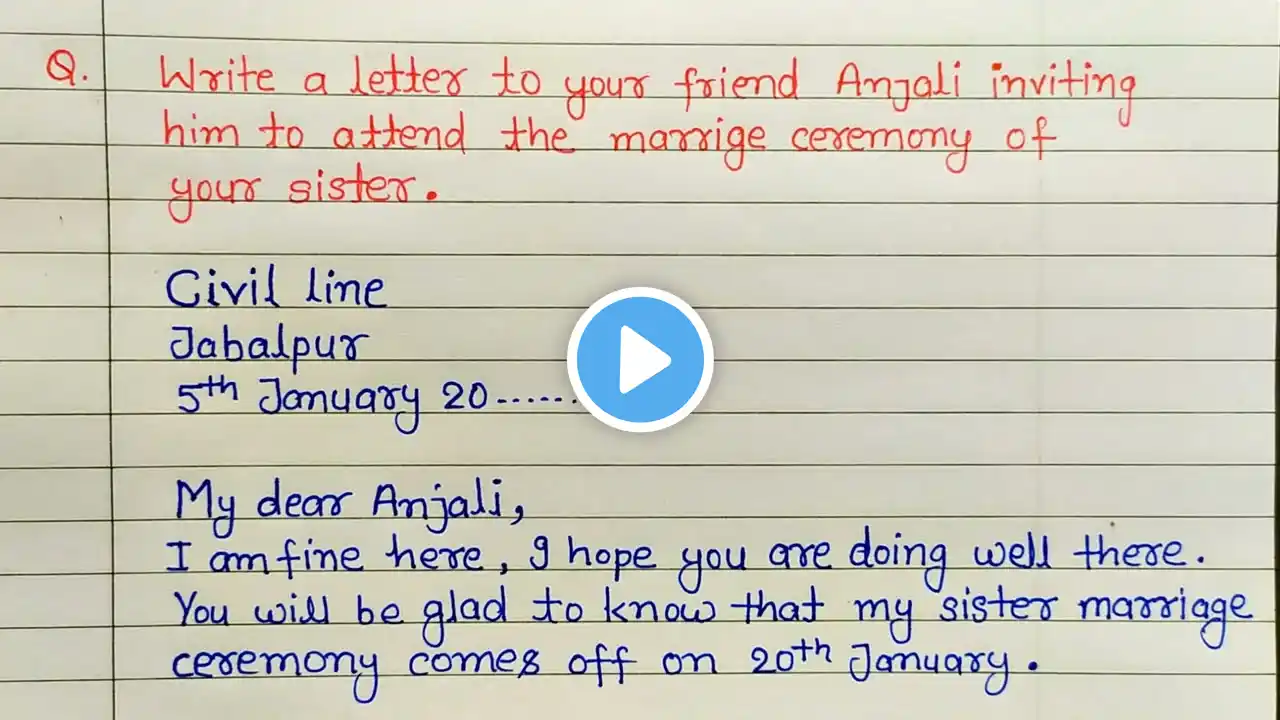 Q. Write a letter to your friend Anjali inviting
him to attend the marrige ceremony of
your sister.
Civil line
Jabalpur
5th January 20......
My dear Anjali,
I am fine here, I hope you are doing well there.
You will be glad to know that my sister marriage
ceremony comes off on 20th January.